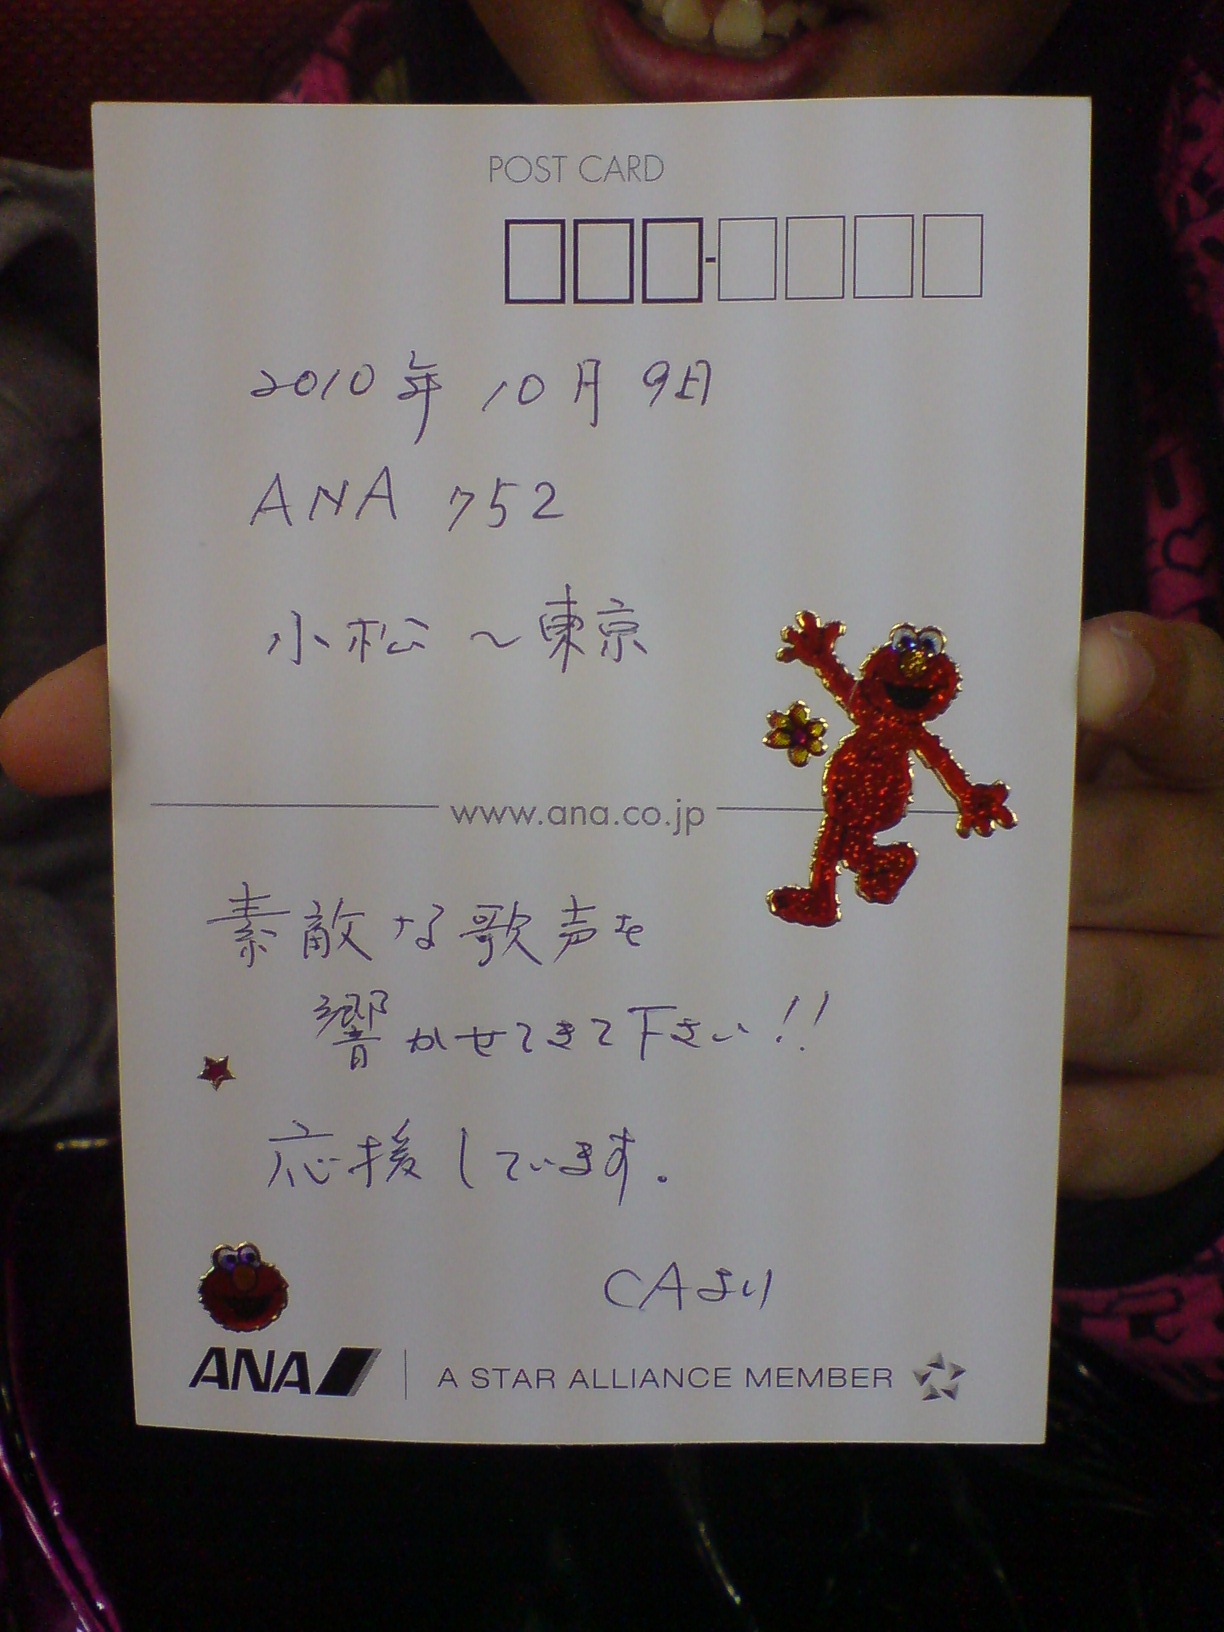 POST CARD
2010年 10月 9日
ANA 752
小松 ～ 東京
www.ana.co.jp
素敵な歌声を
響かせてきて下さい!!
応援しています。
CAより
ANA
A STAR ALLIANCE MEMBER